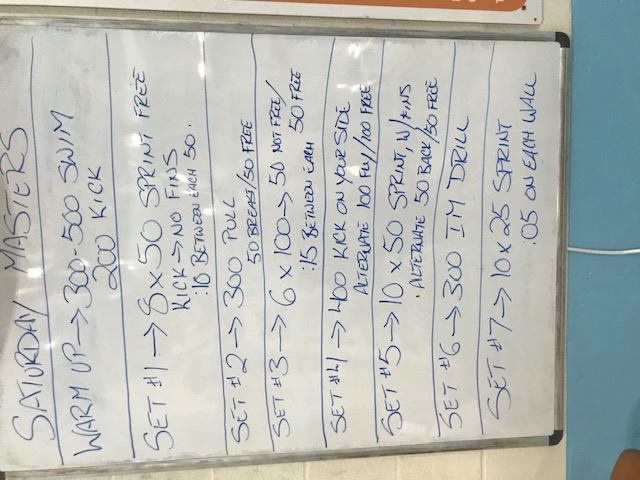 SATURDAY MASTERS
WARM UP → 300-500 SWIM
200 KICK
SET #1 → 8x50 SPRINT FREE
KICK → NO FINS
:10 BETWEEN EACH 50.
SET #2 → 300 PULL
50 BREAST/50 FREE
SET #3 → 6 x 100 → 50 NOT FREE/
50 FREE
:15 BETWEEN EACH
SET #4 → 400 KICK ON YOUR SIDE
ALTERNATE 100 FLY/100 FREE
SET #5 → 10 x 50 SPRINT, W/FINS
. ALTERNATE 50 BACK/50 FREE
SET #6 → 300 IM DRILL
SET #7 → 10 x 25 SPRINT
:05 ON EACH WALL